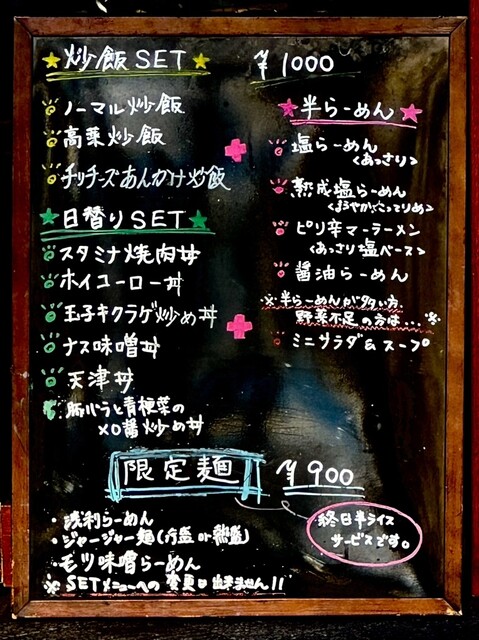 ★炒飯SET★ ¥1000
ノーマル炒飯
高菜炒飯
チリチーズあんかけ炒飯
★日替りSET★
スタミナ焼肉丼
ホイコーロー丼
玉子キクラゲ炒め丼
ナス味噌丼
天津丼
豚バラと青梗菜の
XO醤炒め丼
+
+
★半らーめん★
塩らーめん
<あっさり>
熟成塩らーめん
<まろやかこってりめ>
ピリ辛マーラーメン
<あっさり塩ベース>
醤油らーめん
※半らーめんが多い方、
野菜不足の方は…※
ミニサラダ&スープ
限定麺 ¥900
・浅利らーめん
・ジャージャー麺(冷盛 or 熱盛)
・モツ味噌らーめん
※SETメニューへの変更は出来ません!!
終日半ライス
サービスです。